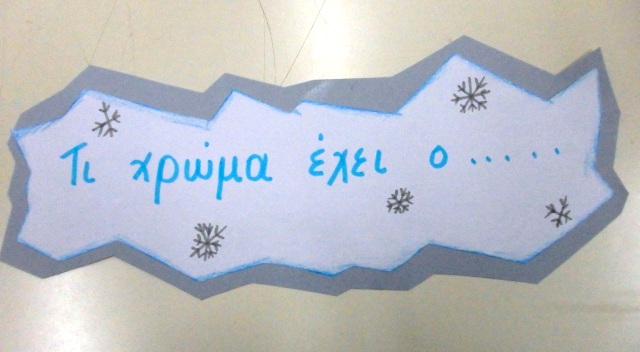 Τι χρώμα έχει ο.....